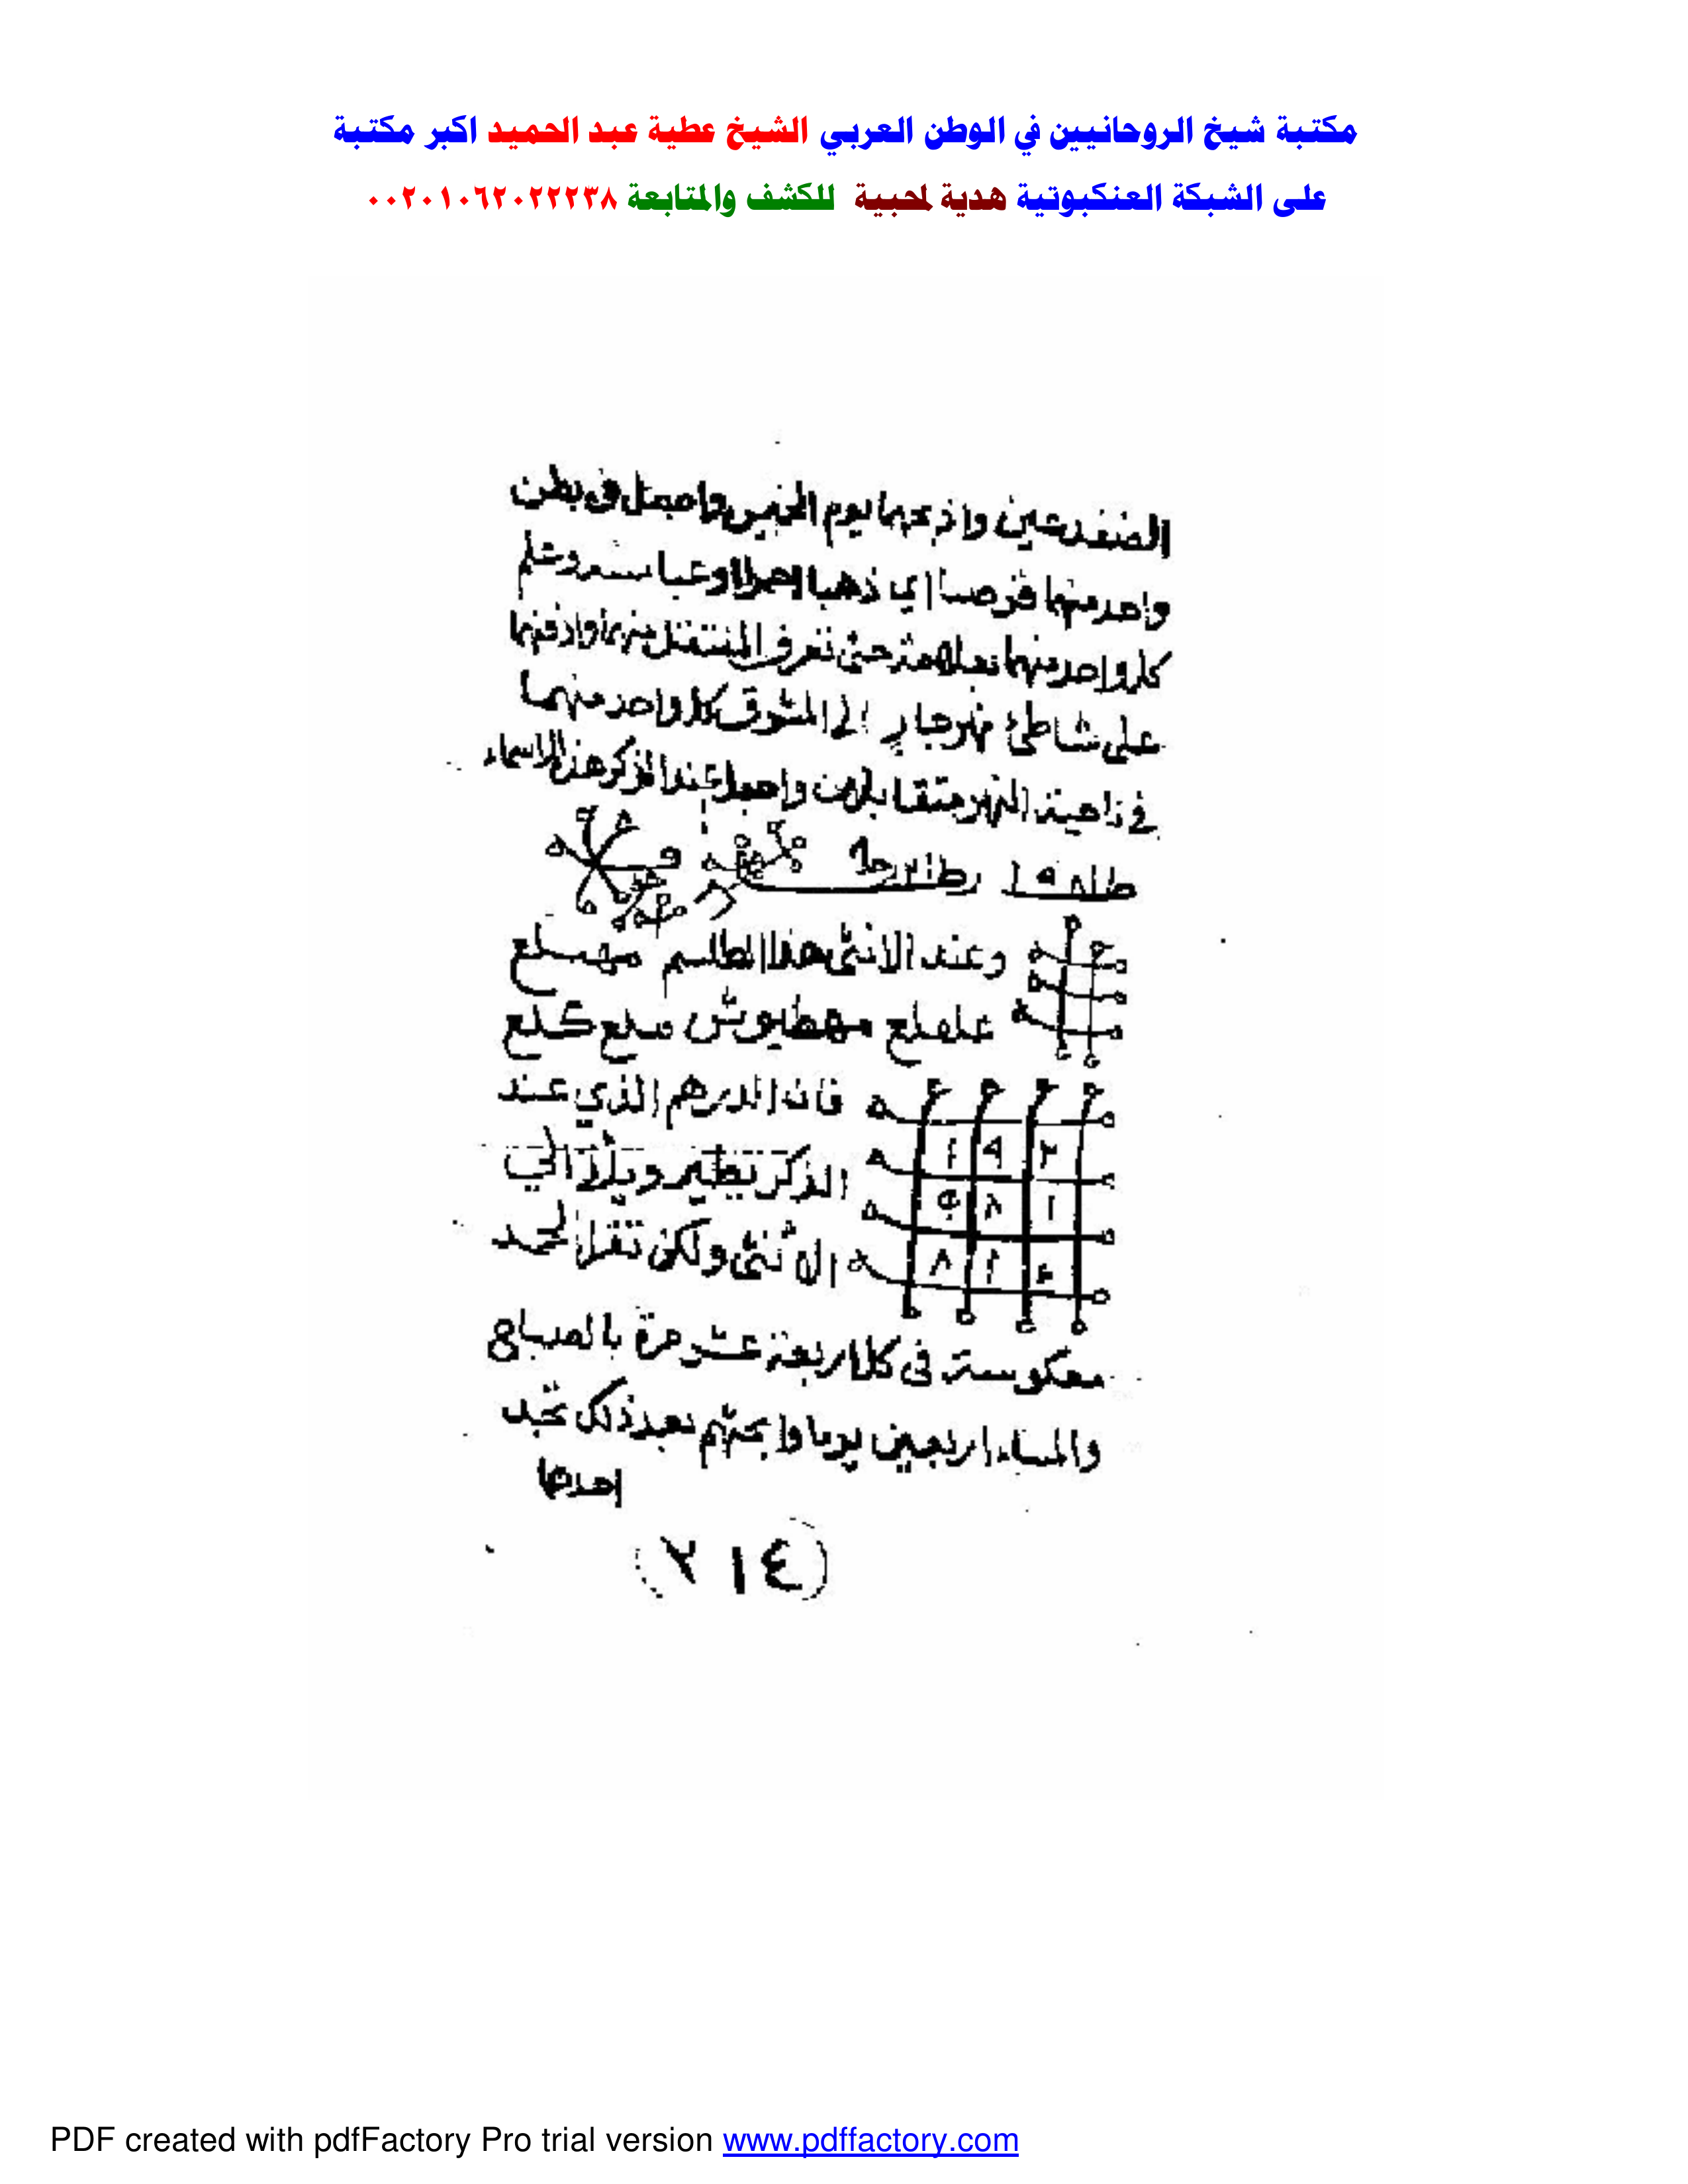 مكتبة شيخ الروحانيين في الوطن العربي الشيخ عطية عبد الحميد اكبر مكتبة
على الشبكة العنكبوتية هدية لمحبية للكشف والمتابعة ٠٠٢٠١٠٦٢٠٢٢٢٣٨
الضفدعتين واذبحهما يوم الخميس واجعل في بطن
واحد منهما قرصا اي ذهبا احمرا وعباسـ وعلم
كل واحد منهما بعلامة حتى تعرف المنتقل منهما وادفنهما
على شاطئ نهر جار إلى الشرق كل واحد منهما
في ناحية النهر متقابلين واجعل عند الذكر هذه الاسماء
وعند الانثى هذا الطلسم مهسلع
علملع مهطيوش صلع كلع
فان الدرهم الذي عند
الذكر يطير ويأتي الى
الأنثى ولكن تقرا الحمد
١ ٩ ٢
٩ ٨ ١
٨ ١ ٤
معكوسة في كل اربعة عشر مرة بالصباح
والمساء اربعين يوما وابحثهم بعد ذلك تجد
احدها
(٢١٤)
PDF created with pdfFactory Pro trial version www.pdffactory.com